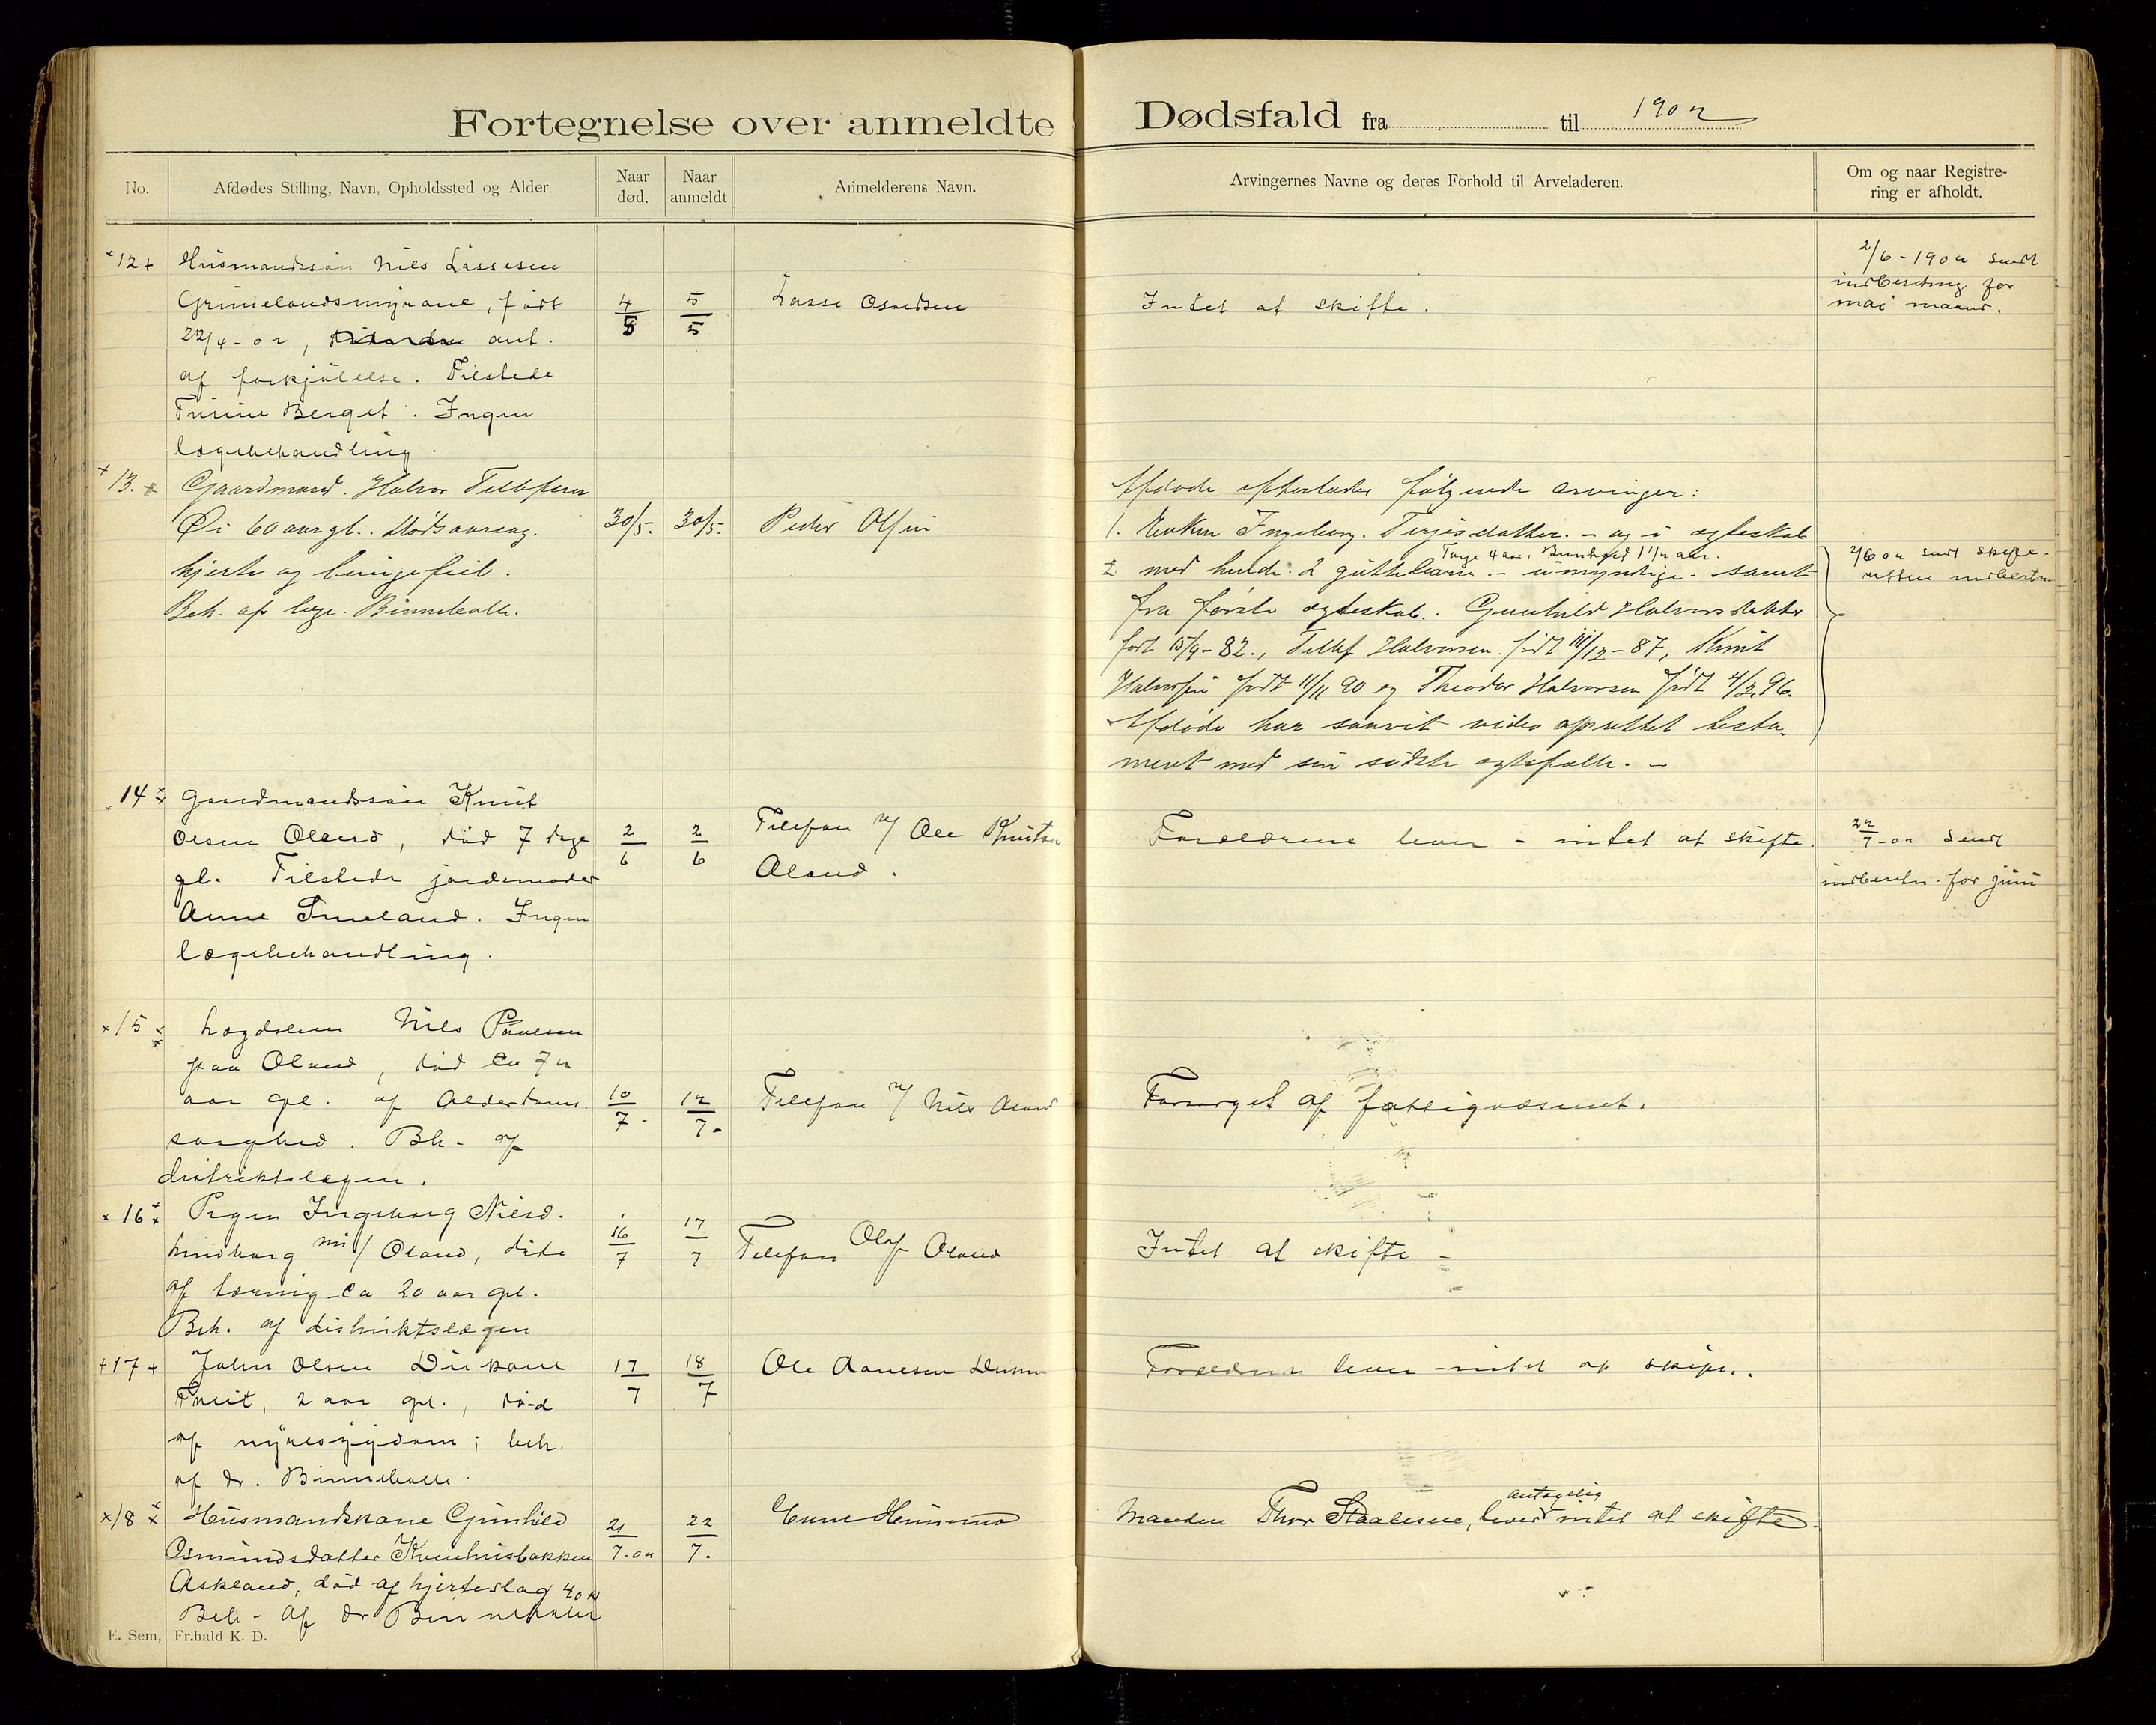 Fortegnelse over anmeldte Dødsfald fra til 1902
No.
Afdødes Stilling, Navn, Opholdssted og Alder.
Naar død.
Naar anmeldt
Anmelderens Navn.
Arvingernes Navne og deres Forhold til Arveladeren.
Om og naar Registre-
ring er afholdt.
12 Husmandssøn Nils Lassesen
Grimelandsmyrane, født
22/4-02, ant.
af forkjølelse. Tilstede
Berget. Ingen
lægebehandling.
4/5
5/5
Lasse Osuldsen
Intet at skifte.
2/6-1902 sendt
indberetning for
mai maaned.
13. Gaardmand. Halvor Tellefsen
Øi 60 aar gl. Dødsaarsag.
hjerte og lungefeil.
Beh. af læge. Binneballe.
30/5.
30/5.
Peder Olsen
Afdøde efterlader følgende arvinger:
1. Enken Ingeborg. Terjesdatter. - og i ægteskab
Tarje 4 aar, 1 1/2 aar.
2 med hende. 2 guttebarn. - umyndige. samt
fra første ægteskab. Gunhild Halvorsdatter
født 15/9-82., Tellef Halvorsen. født /12-87, Knut
Halvorsen født 11/11 90 og Theodor Halvorsen født 4/2.96.
Afdøde har saavit vides oprettet testa-
ment med sin sidste ægtefælle. -
2/6 02 sendt skifte-
retten indberetn
14 Gaardmandssøn Knut
Olsen Oland, død 7 dage
gl. Tilstede jordemoder
Anne Smeland. Ingen
lægebehandling.
2/6
2/6
Telefon v/ Ole Knutsen
Oland.
Forældrene lever - intet at skifte.
22/7-02 sendt
indberetn. for juni
15 Lægdslem Nils Paulsen
paa Oland, død ca 72
aar gl. af Alderdoms
svaghed. Beh. af
distriktslægen.
10/7-
12/7-
Telefon v/ Nils Oland
Forsørget af fattigvæsenet.
16 Pigen Ingeborg Nilsd.
Lindborg Oland, døde
af tæring ca 20 aar gl.
Beh. af distriktslægen
16/7
17/7
Telefon Olaf Oland
Intet at skifte -
17 John Olsen
2 aar gl., død
af nyresygdom; beh.
af dr. Binneballe.
17/7
18/7
Ole Aanesen
Forældrene lever - intet at skifte.
18 Husmandskone Gunhild
Osmundsdatter Kvenhusbakken
Askland, død af hjerteslag 40
Beh - af dr Binneballe
21/7-02
22/7.
Manden Thor Staalesen, lever antagelig intet at skifte.
E. Sem, Fr.hald K. D.